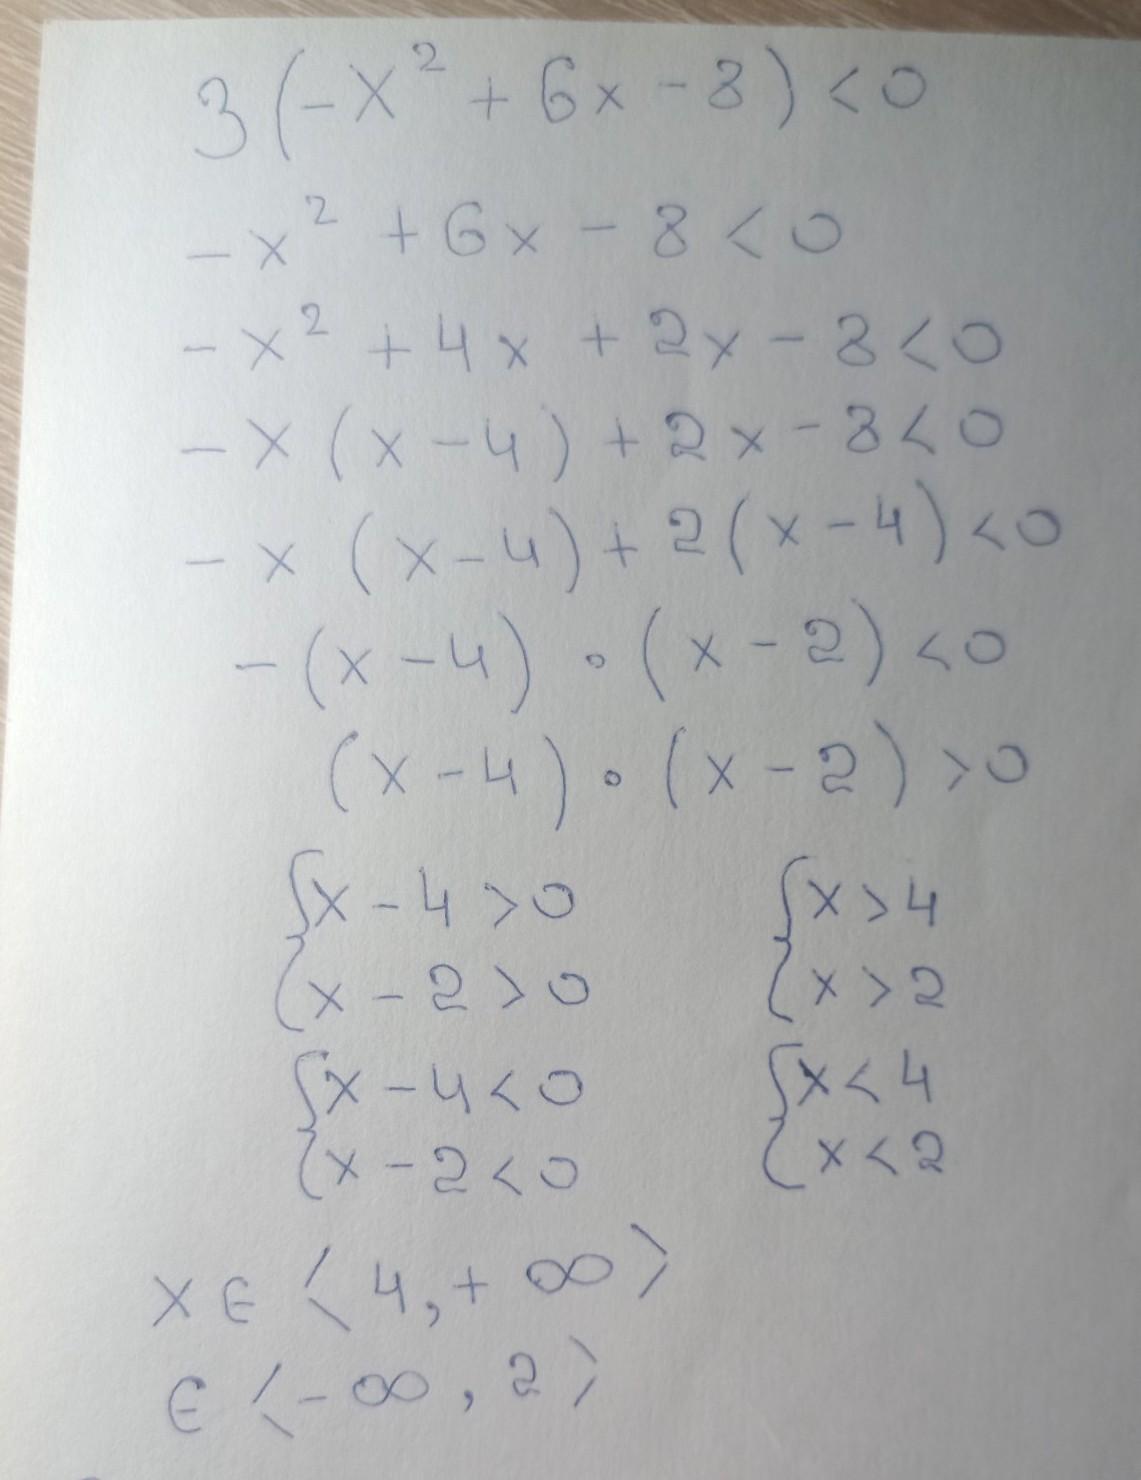 3(-x² + 6x - 8) < 0
-x² + 6x - 8 < 0
-x² + 4x + 2x - 8 < 0
-x(x - 4) + 2x - 8 < 0
-x(x - 4) + 2(x - 4) < 0
-(x - 4) · (x - 2) < 0
(x - 4) · (x - 2) > 0
{x - 4 > 0 {x > 4
{x - 2 > 0 {x > 2
{x - 4 < 0 {x < 4
{x - 2 < 0 {x < 2
x ∈ ⟨4, + ∞⟩
∈ ⟨- ∞, 2⟩